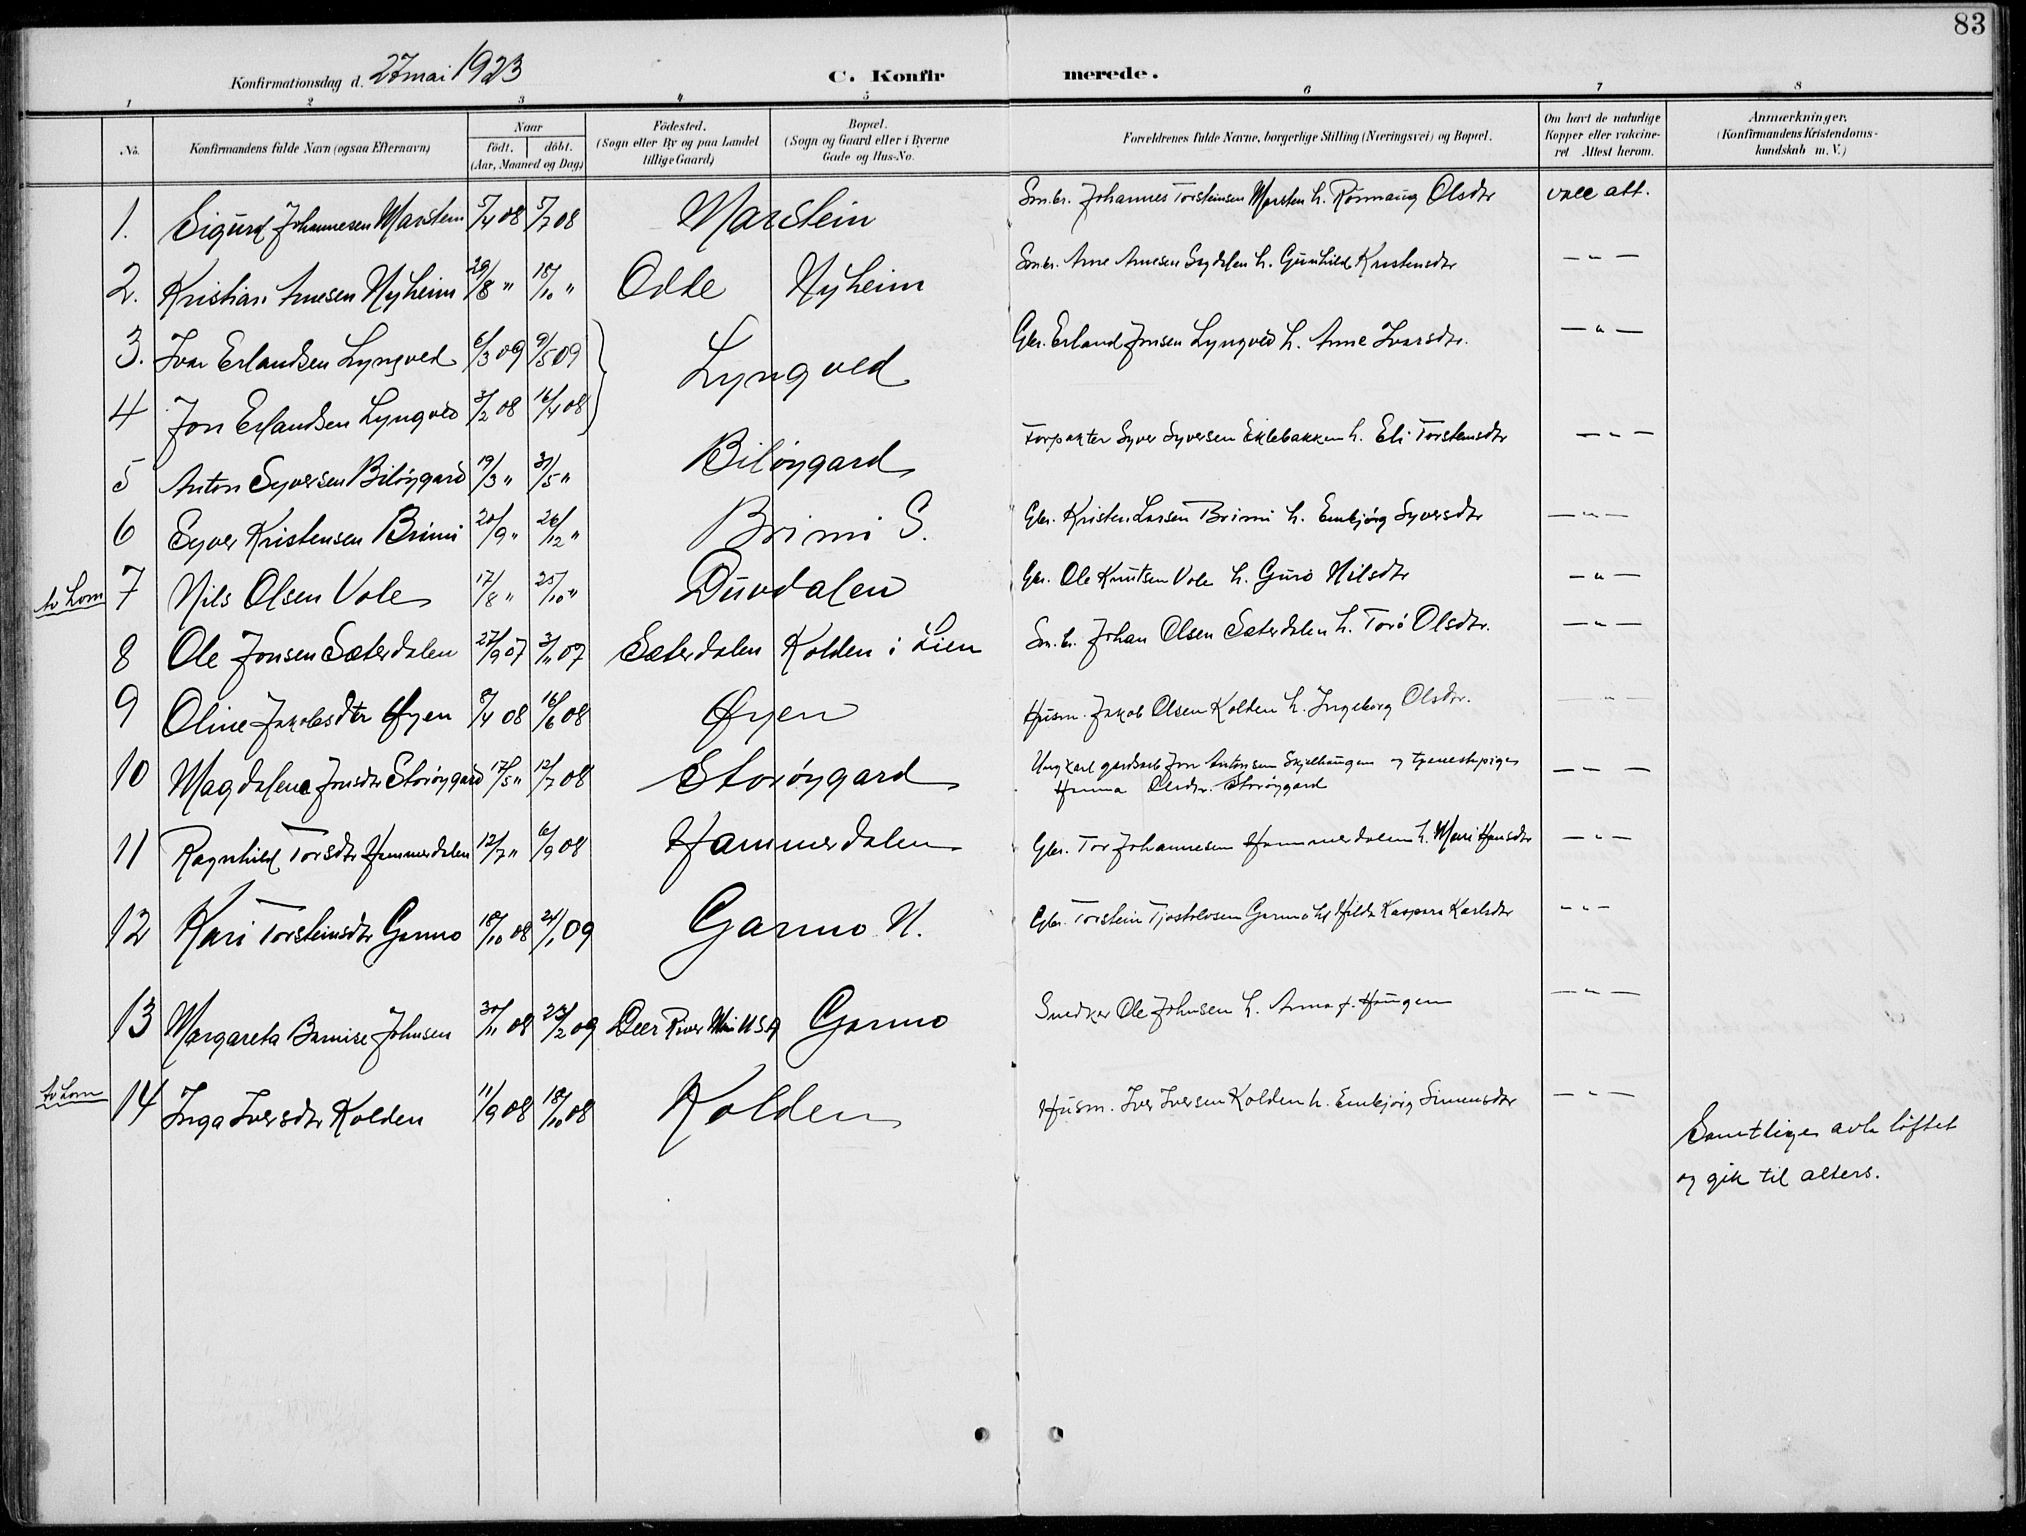 83
Konfirmationsdag d. 27 mai 1923 C. Konfirmerede.
1 2 3 4 5 6 7 8
No. Konfirmandens fulde Navn (ogsaa Efternavn) Naar födt. döbt. (Aar, Maaned og Dag) Födested. (Sogn eller By og paa Landet tillige Gaard) Bopæl. (Sogn og Gaard eller i Byerne Gade og Hus-No. Forældrenes fulde Navne, borgerlige Stilling (Næringsvei) og Bopæl. Om havt de naturlige Kopper eller vakcineret Attest herom. Anmærkninger. (Konfirmandens Kristendomskundskab m. V.)
1. Sigurd Johannesen Marstein 5/4 08 5/7 08 Marstein Sm.br. Johannes Torsteinsen Marstein h. Rønnaug Olsdtr vacc att.
2. Kristian Arnesen Nyheim 29/8 " 18/10 " Odde Nyheim Sm.br. Arne Arnesen h. Gunhild Kristensdtr — " —
3. Ivar Erlandsen Lyngved 6/3 09 9/5 09 } Lyngved Gbr. Erland Jonsen Lyngved h. Anne Ivarsdtr. — " —
4 Jon Erlandsen Lyngved 3/2 08 16/4 08
5 Anton Syversen Biløygard 19/3 " 31/5 " Biløygard Forpakter Syver Syversen Eklebakken h. Eli Torsteinsdtr — " —
6 Syver Kristensen Brimi 20/9 " 26/12 " Brimi S. Gbr. Kristen Larsen Brimi h. Embjørg Syversdtr — " —
Av Lom 7 Nils Olsen Vole 17/8 " 25/10 " Duvdalen Gbr. Ole Knutsen Vole h. Guro Nilsdtr — " —
8 Ole Jonsen Sæterdalen 27/9 07 3/11 07 Sæterdalen Kolden i Lien Sm.br. Johan Olsen Sæterdalen h. Torø Olsdtr. — " —
9 Oline Jakobsdtr Øyen 8/4 08 16/6 08 Øyen Husm. Jakob Olsen Kolden h. Ingeborg Olsdtr. — " —
10 Magdalena Jonsdtr Storøygard 17/5 " 12/7 08 Storøygard Ungkarl gardsarb Jon Antonsen Skjelhaugen og tjenestepige — " —
Olsdtr. Storøygard
11 Ragnhild Torsdtr Hammerdalen 12/7 " 6/9 08 Hammerdalen Gbr. Tor Johannesen Hammerdalen h. Mari Hansdtr — " —
12 Kari Torsteinsdtr Garmo 18/10 08 24/1 09 Garmo N. Gbr. Torstein Tjostolvsen Garmo h. Hilda Kaspara Karlsdtr — " —
13 Margareta Johnsen 30/11 08 23/2 09 Deer River Min USA Garmo Snedker Ole Johnsen h. Anna f. Haugen — " —
Av Lom 14 Inga Iversdtr Kolden 11/9 08 18/10 08 Kolden Husm. Iver Iversen Kolden h. Embjørg Simensdtr — " —
Samtlige avla løftet
og gik til alters.